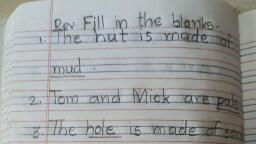 Rev. Fill in the blanks.
1. The hut is made of
mud.
2. Tom and Mick are pals
3. The hole is made of